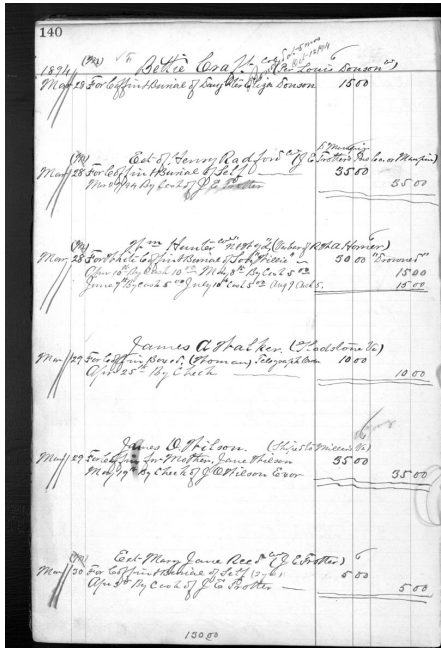 140
1894 (Ms) Bettie Craft (Per Louis Donson)
Mar 28 For Coffin & Burial of Daughter Eliza Donson 15 00
(M) Est of Henry Radford (J E Trotter
Mar 28 For Coffin & Burial of Self 35 00
By Cash of J. E. Trotter 35 00
Wm Hunter
Mar 28 For White Coffin & Burial of Son "Willie" 30 00 "Drowned"
Apr 10th By Cash 10 00 May 8th By Cash 5 00 15 00
June 9th By Cash 5 00 July 10th Cash 5 00 Aug 9 Cash 5. 15 00
James A Walker, (Gladstone Va)
Mar 29 For Coffin Boxed, (Woman) Telegraph 10 00
Apr 25th By Check 10 00
James O. Wilson. (Shipped to Millers Va)
Mar 29 For Coffin for Mother, Jane Wilson 35 00
May 19th By Check of J O Wilson Exor 35 00
(M) Est Mary Jane Reed (J E Trotter)
Mar 30 For Coffin & Burial of Self 5 00
Apr 3rd By Cash of J E Trotter 5 00
130 00